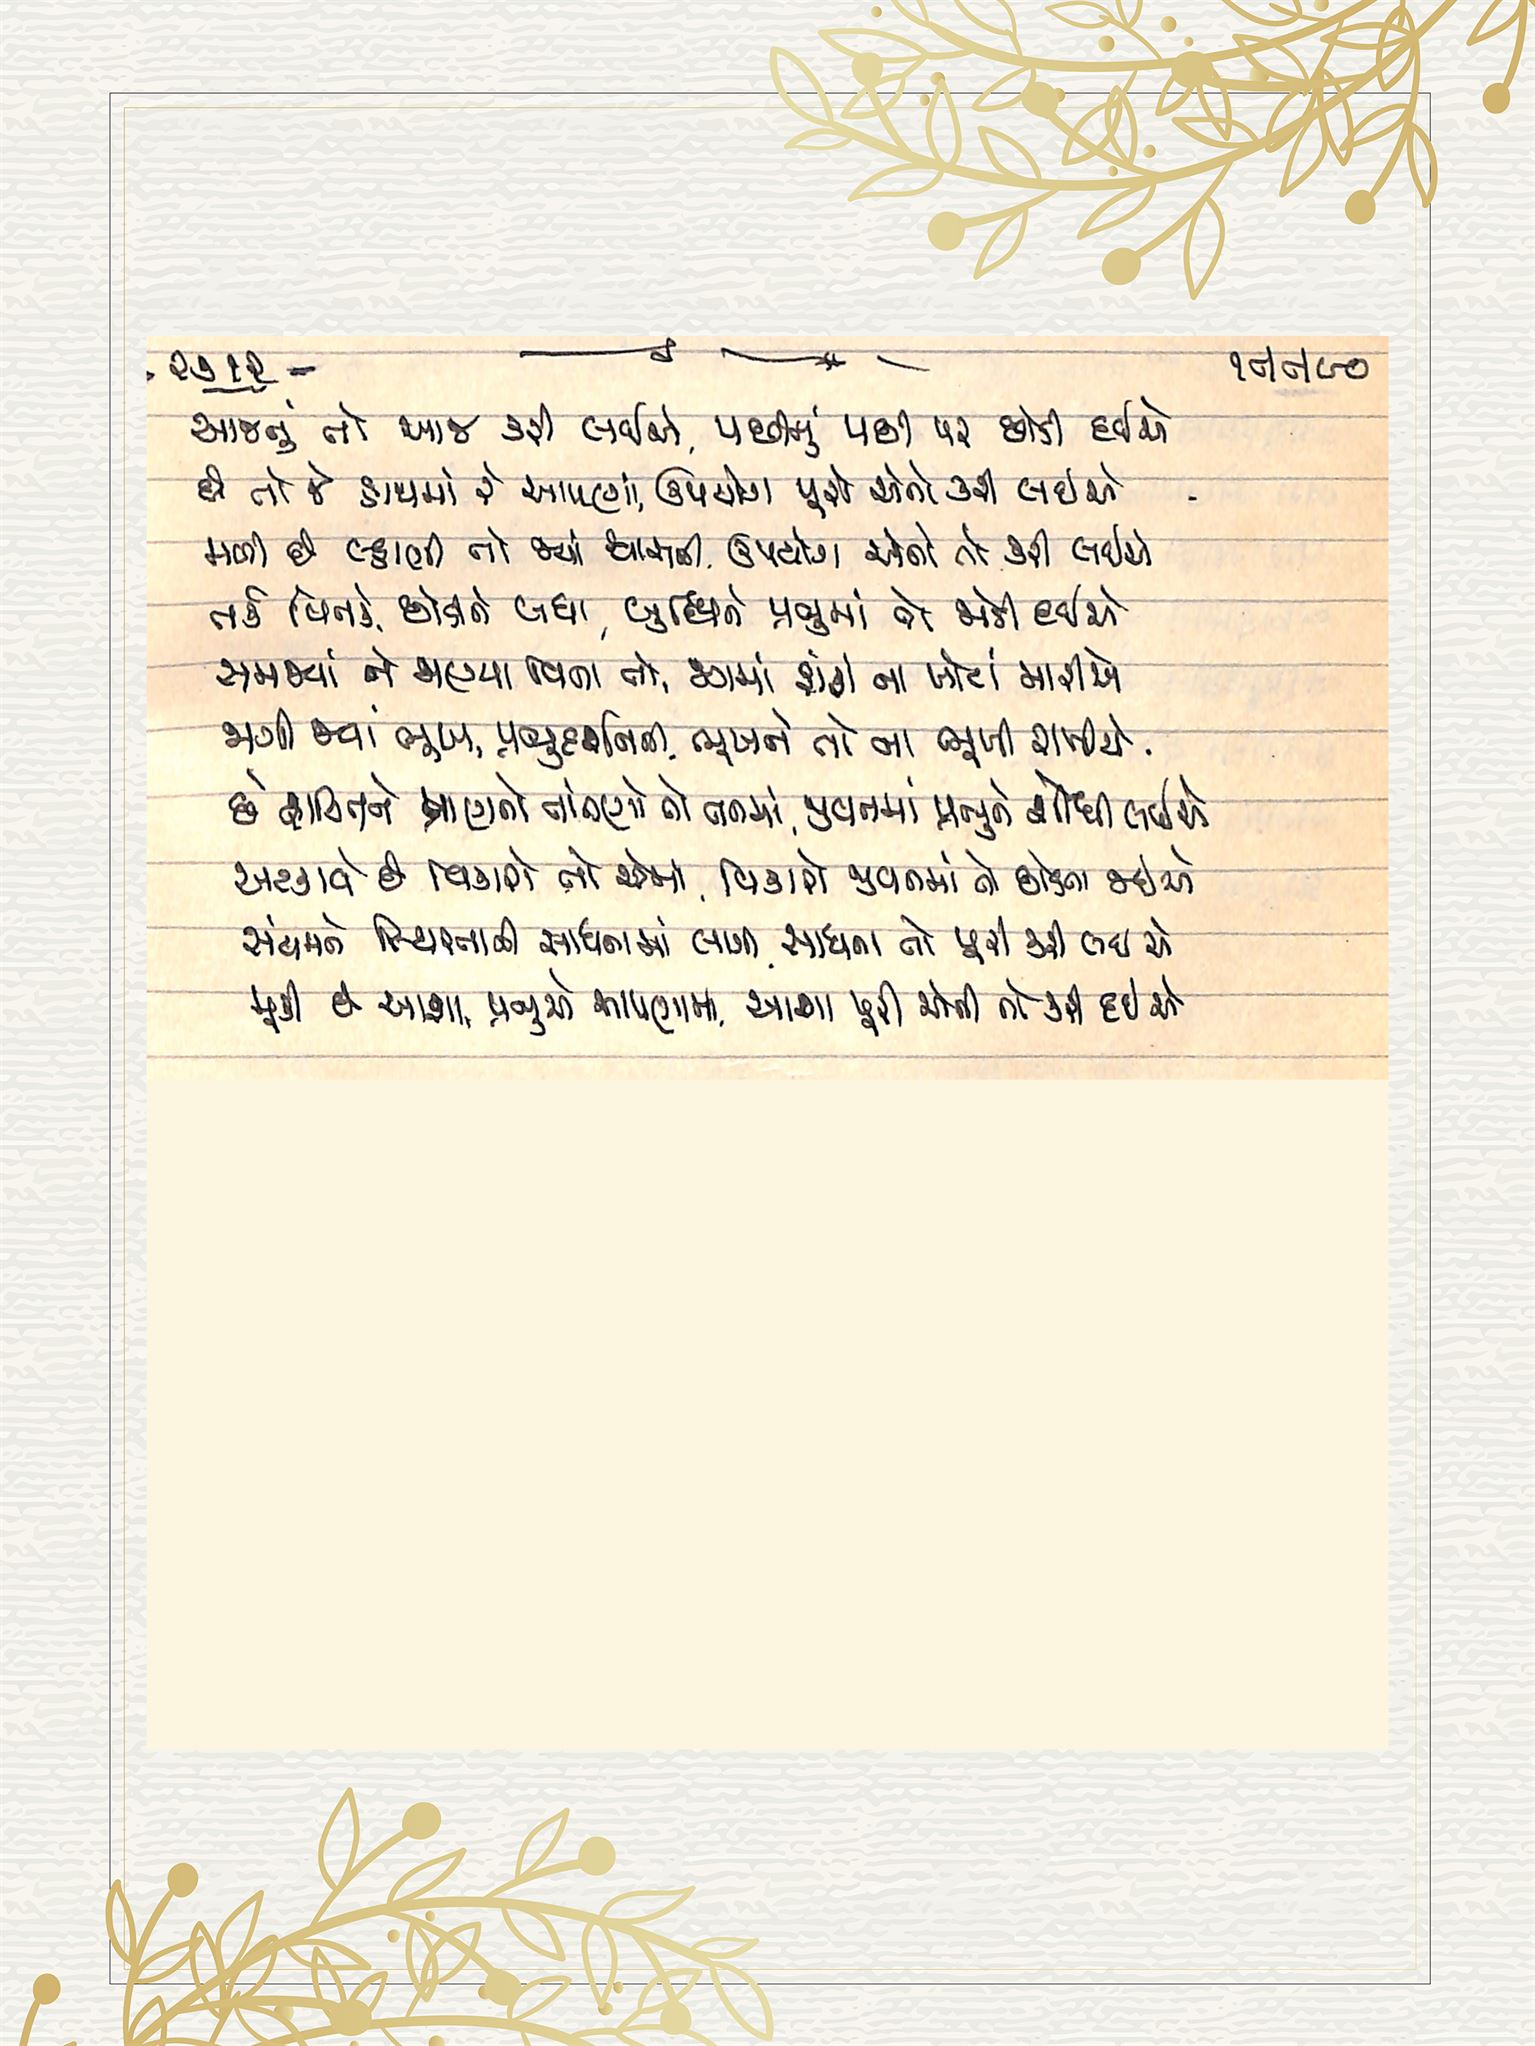 ૨૭૧૨ -
આજનું તો આજ કરી લઈએ, પછીનું પછી પર છોડી દઈએ
છે તો જે હાથમાં રે આપણાં, ઉપયોગ પૂરો એનો કરી લઇએ
મળી છે લ્હાણી તો જ્યાં શ્વાસની, ઉપયોગ એનો તો કરી લઈએ
તર્ક વિતર્ક, છોડીને બધા, બુદ્ધિને પ્રભુમાં જો જોડી દઈએ
સમજ્યાં ને જાણ્યા વિના તો, જગમાં ના ખોટાં મારીએ
જાગી જ્યાં ભૂખ, પ્રભુદર્શનની, ભૂખને તો ના ભૂલી
છે ને તો તનમાં, જીવનમાં પ્રભુને શોધી લઈએ
અટકાવે છે વિકારો તો એમાં, વિકારો જીવનમાં તો છોડતા જઇએ
સંયમને સ્થિરતાની સાધનામાં લાગી, સાધના તો પૂરી કરી લઇએ
મૂકી છે આશા, પ્રભુએ આપણામાં, આશા પૂરી એની તો કરી દઇએ